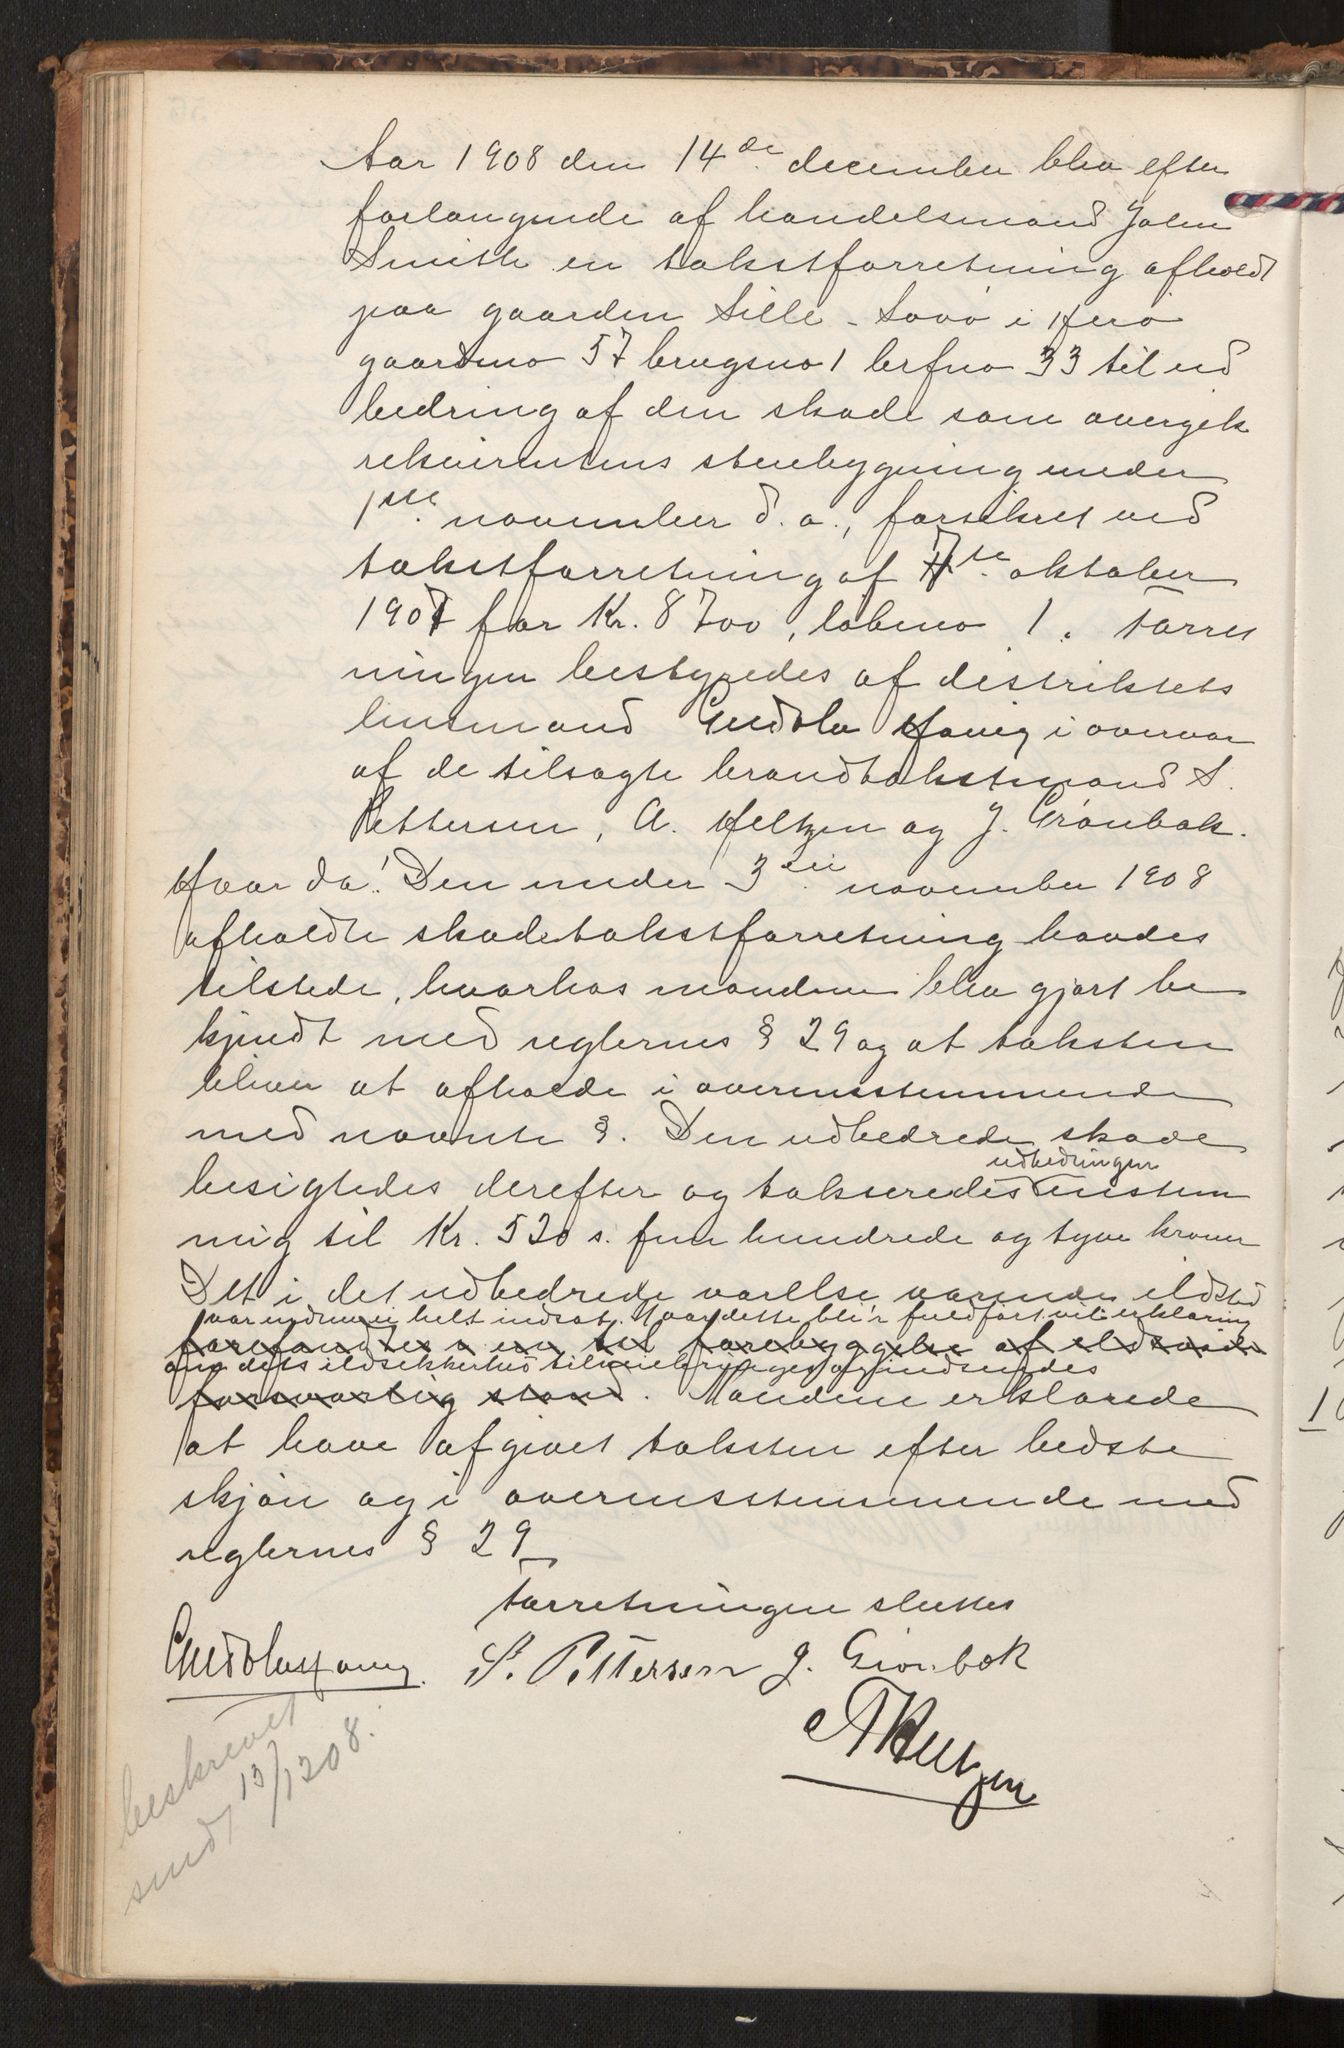 Aar 1908 den 14de december blev efter
forlangende af handelsmand John
Smith en takstforretning afholdt
paa gaarden Lille-Savø i Herø
gaardsno 57 brugsno 1 brfno 33 til ud
bedring af den skade som overgik
rekvirentens stenbygning under
1ste november d. a., forsikret ved
takstforretning af 7de oktober
1907 for Kr. 8700, løbeno 1. Forret
ningen bestyredes af distriktets
lensmand Gudolv Havig i overvær
af de tilsagte brandtakstmænd S.
Pettersen, A. Heltzen og J. Grønbæk.
Hvor da! Den under 3die november 1908
afholdte skadetakstforretning havdes
tilstede, hvorhos mændene blev gjort be
kjendt med reglernes § 29 og at taksten
bliver at afholde i overensstemmende
med nævnte §. Den udbedrede skade
udbedringen
besigtedes derefter og takseredes enstem
mig til Kr. 520 s. fem hundrede og tyve kroner
Det i det udbedrede værelse værende ildsted
var endnu ei helt indsat. Naar dette bli'r fuldført vil erklæring
forefandtes i en til forebyggelse af ildsvaade
om dets ildsikkerhed tilveiebringes og indsendes
forsvarlig stand. Mændene erklærede
at have afgivet taksten efter bedste
skjøn og i overensstemmende med
reglernes § 29
Forretningen sluttet
Gudolv Havig. S. Pettersen J. Grønbæk
A Heltzen
beskrevet
sendt 13/12 08.